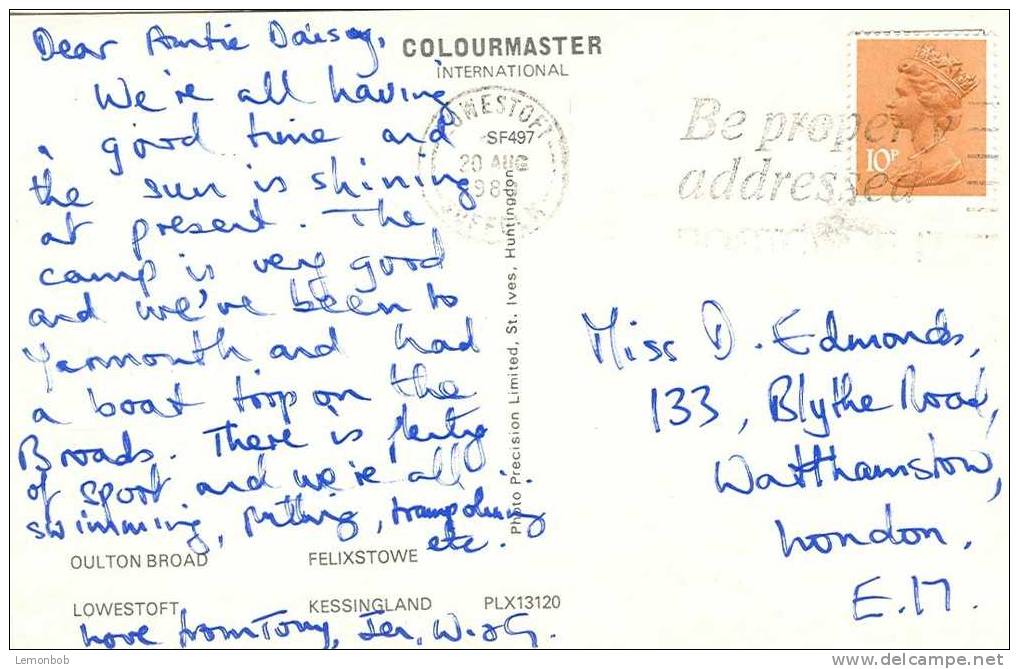 Dear Auntie Daisy,
We're all having
a good time and
the sun is shining
at present. The
camp is very good
and we've been to
Yarmouth and had
a boat trip on the
Broads. There is plenty
of sport and we're all
swimming, putting, trampolining
etc.
OULTON BROAD FELIXSTOWE
LOWESTOFT KESSINGLAND PLX13120
Love from Tony, Jen, W. & G.
COLOURMASTER
INTERNATIONAL
LOWESTOFT
SF497
20 AUG
Photo Precision Limited, St. Ives, Huntingdon
Be properly
addressed
10P
Miss D. Edmonds,
133, Blythe Road,
Walthamstow,
London,
E.17.
Lemonbob
delcampe.net